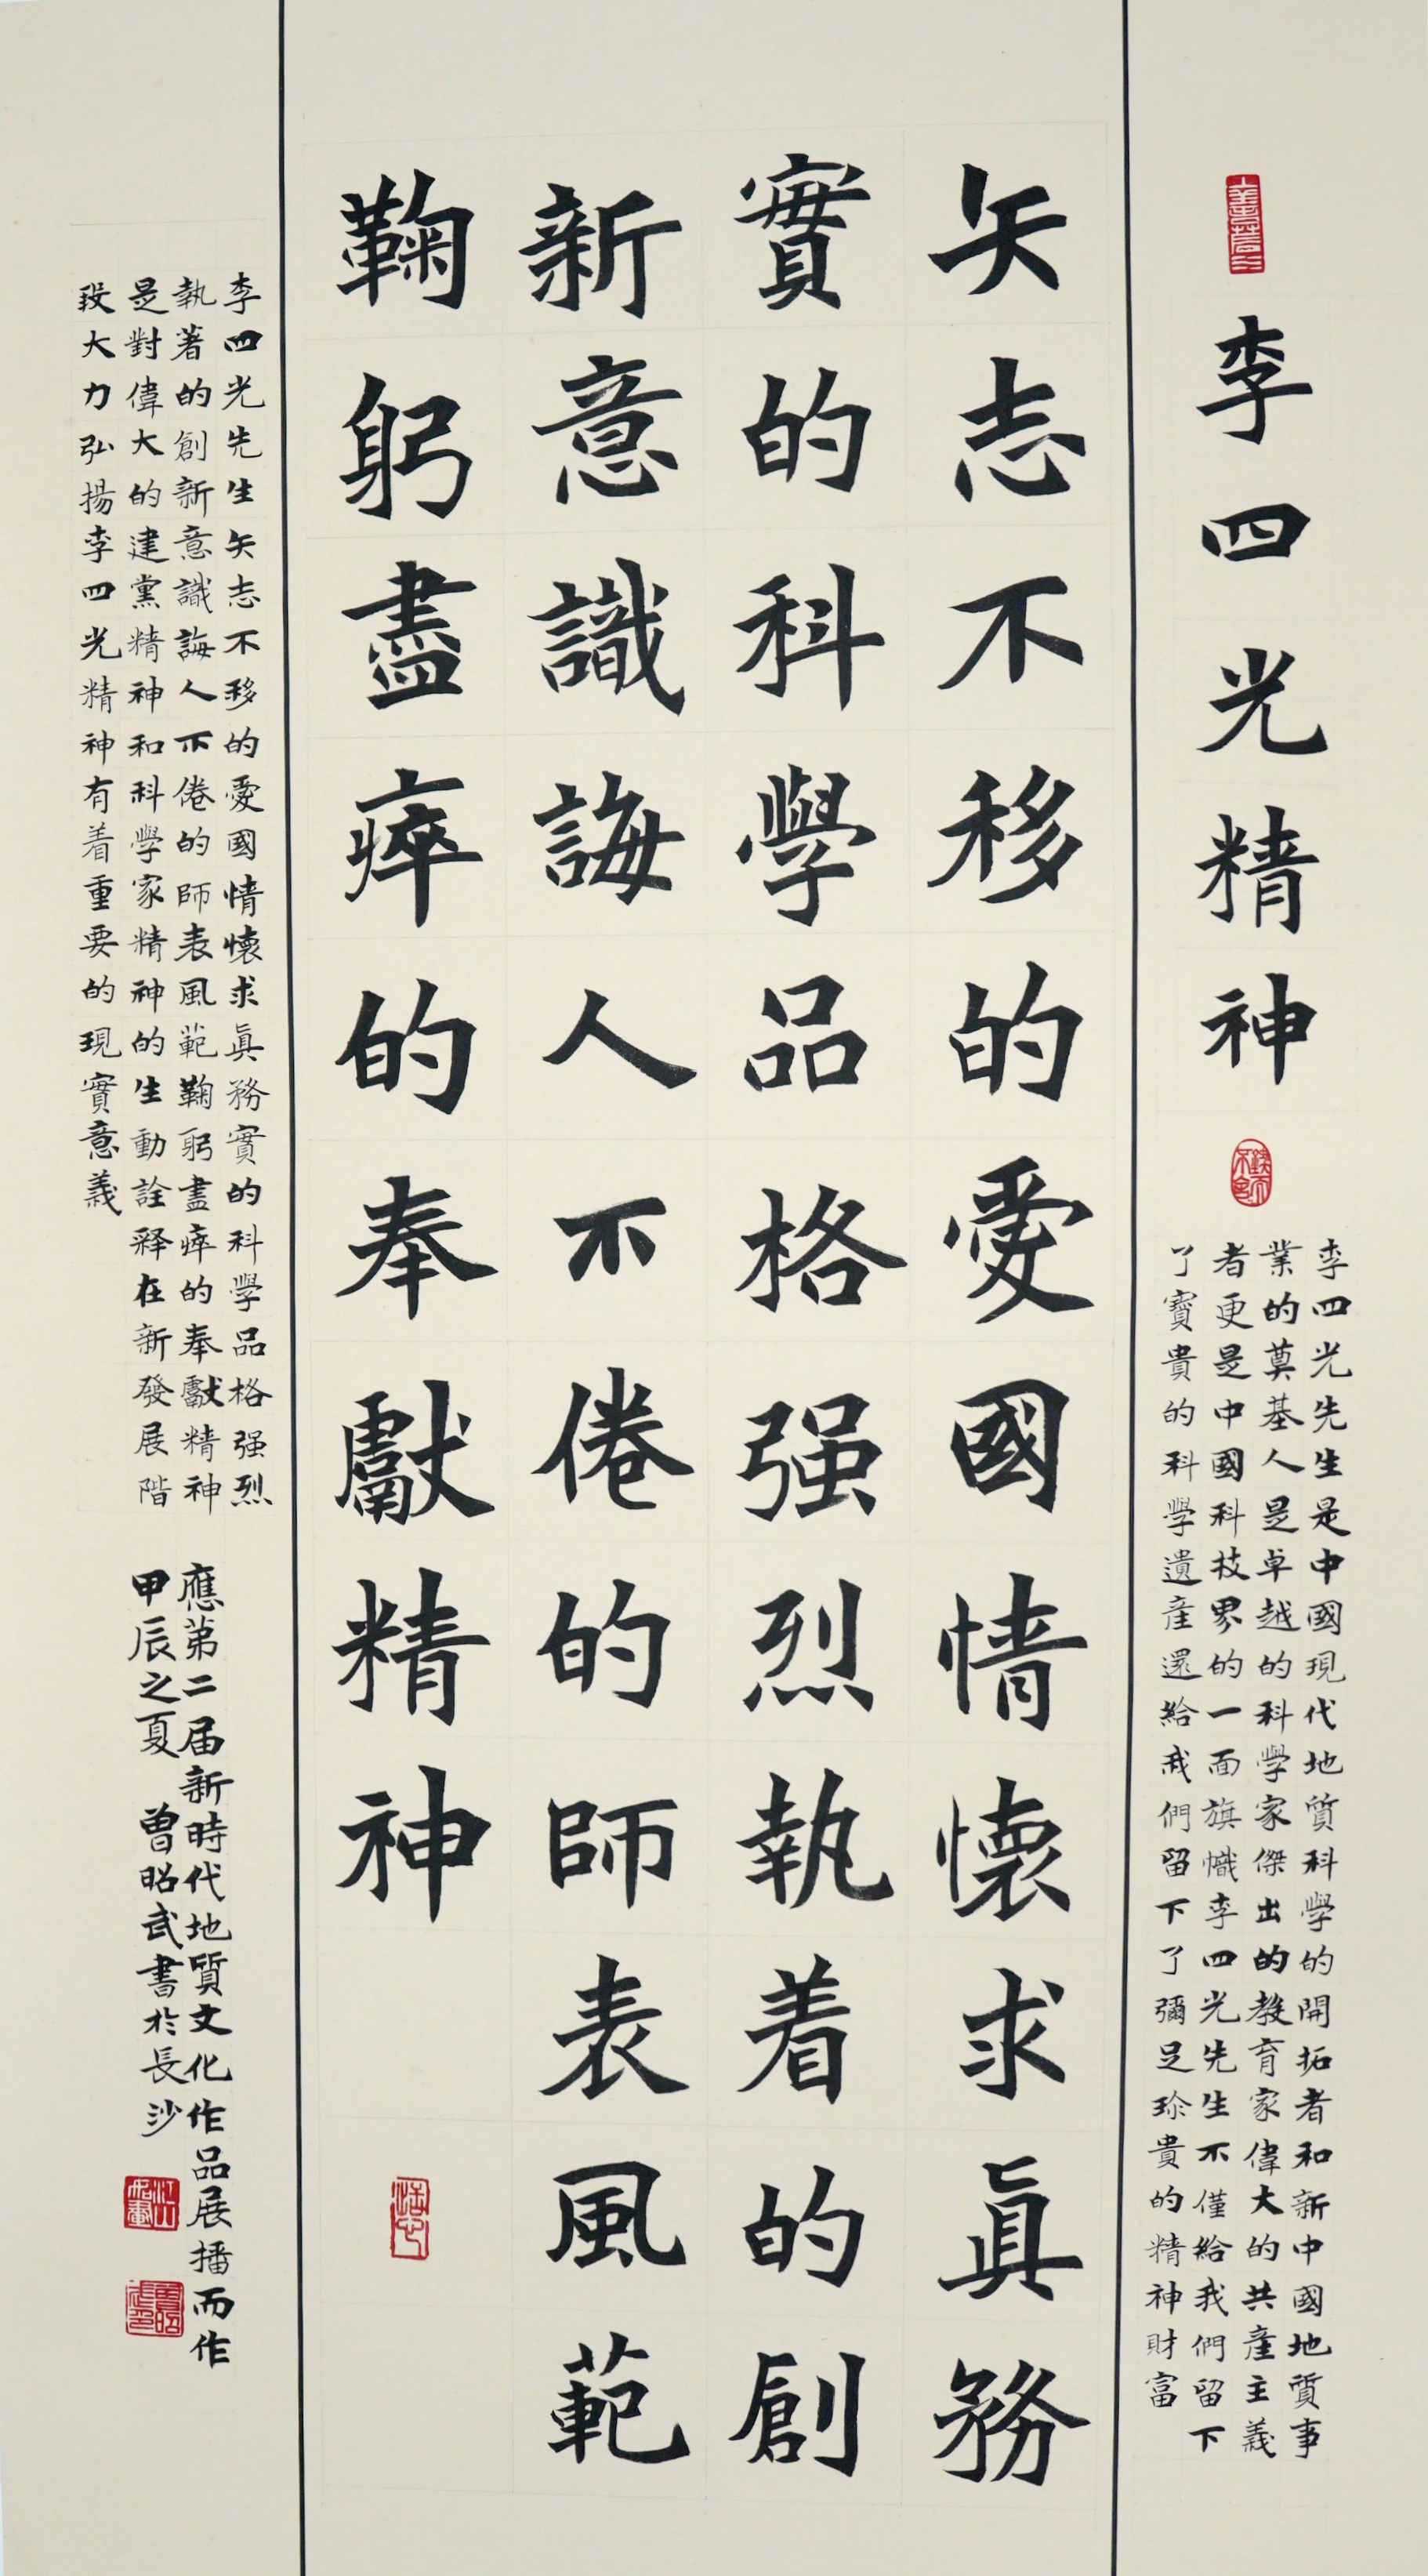 李四光精神
李四光先生是中國現代地質科學的開拓者和新中國地質事
業的奠基人是卓越的科學家傑出的教育家偉大的共產主義
者更是中國科技界的一面旗幟李四光先生不僅給我們留下
了寶貴的科學遺產還給我們留下了彌足珍貴的精神財富
矢志不移的愛國情懷求真務
實的科學品格强烈執着的創
新意識誨人不倦的師表風範
鞠躬盡瘁的奉獻精神
李四光先生矢志不移的愛國情懷求眞務實的科學品格强烈
執著的創新意識誨人不倦的師表風範鞠躬盡瘁的奉獻精神
是對偉大的建黨精神和科學家精神的生動詮释在新發展階
段大力弘揚李四光精神有着重要的現實意義
應第二届新時代地質文化作品展播而作
甲辰之夏 曾昭武書於長沙